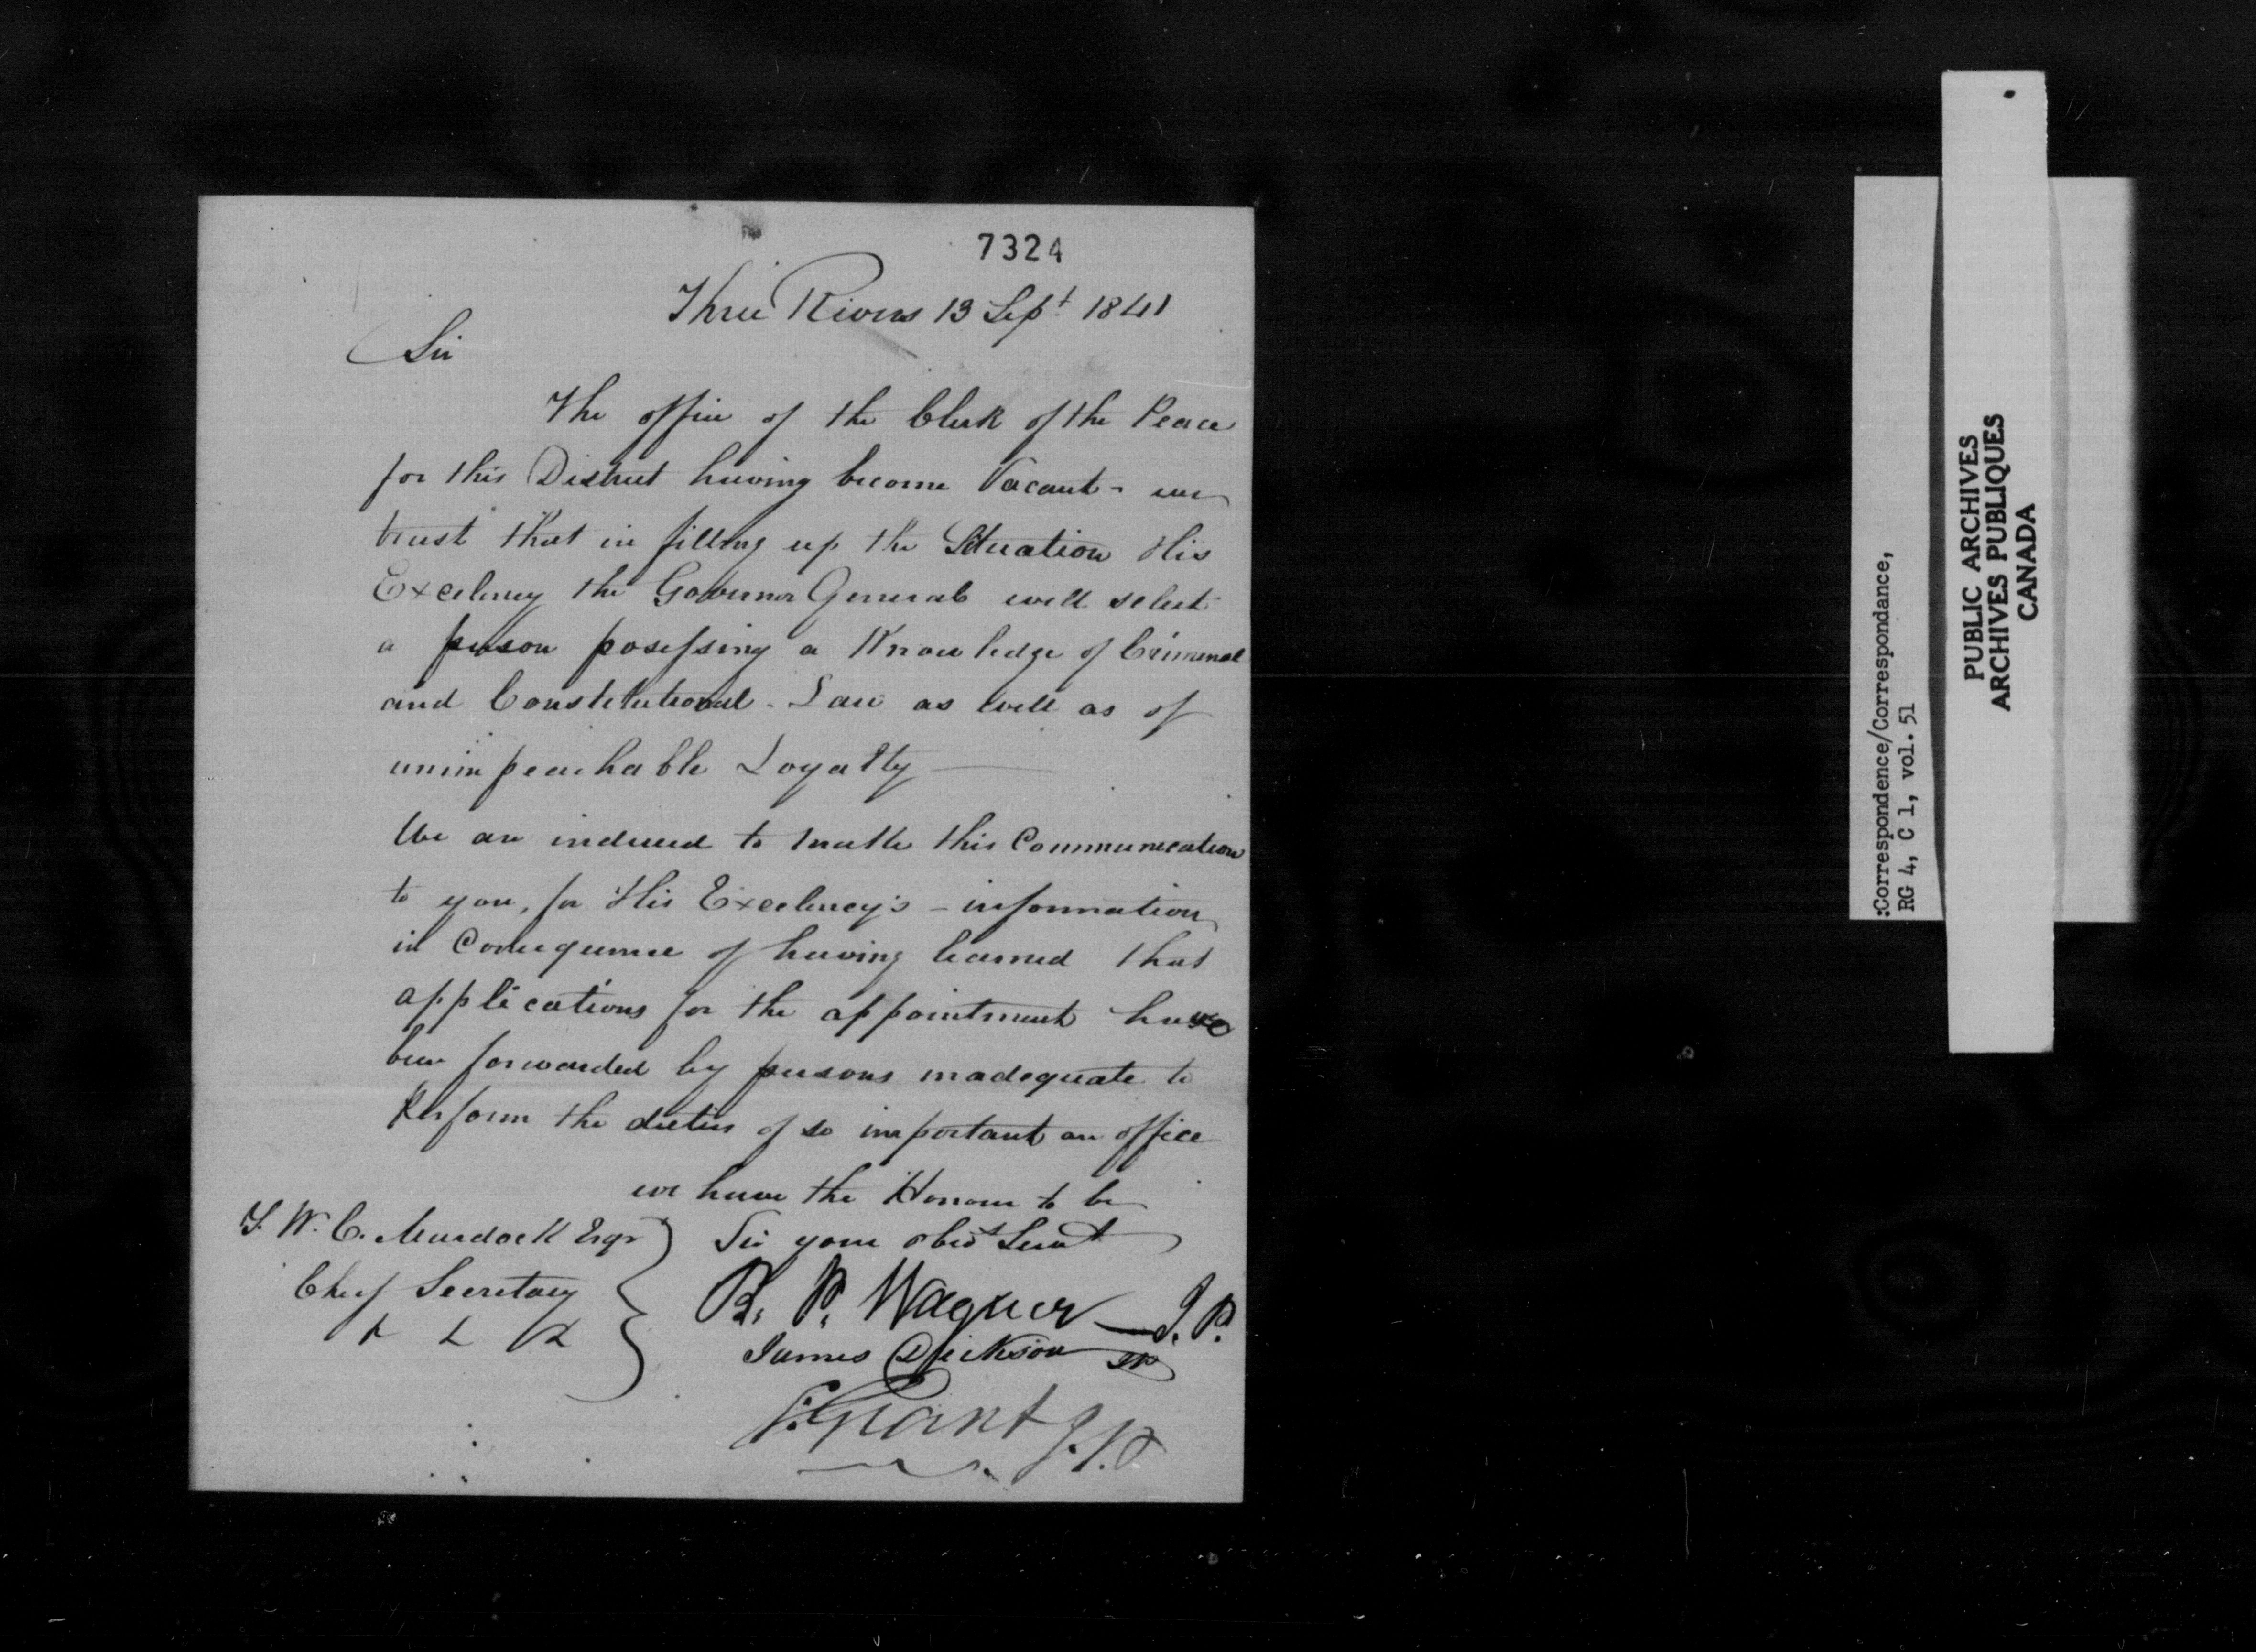 7324
Three Rivers 13 Sept 1841
Sir
The office of the Clerk of the Peace
for this District having become Vacant - we
trust that in filling up the Situation His
Excelency the Governor General will select
a person posessing a Knowledge of Criminal
and Constitutional - Law as well as of
unimpeachable Loyalty
We are induced to make this Communication
to you, for His Excelency's - information
in Consequence of having learned that
applications for the appointment have
been forwarded by persons inadequate to
Perform the duties of so important an office
we have the Honour to be
Sir your obedt Servt
T. W. C. Murdock Esqr
Chief Secretary
& & &
R. P. Wagner J.P.
James Dickson JP
Grant J.P.
:Correspondence/Correspondance,
RG 4, C 1, vol. 51
PUBLIC ARCHIVES
ARCHIVES PUBLIQUES
CANADA